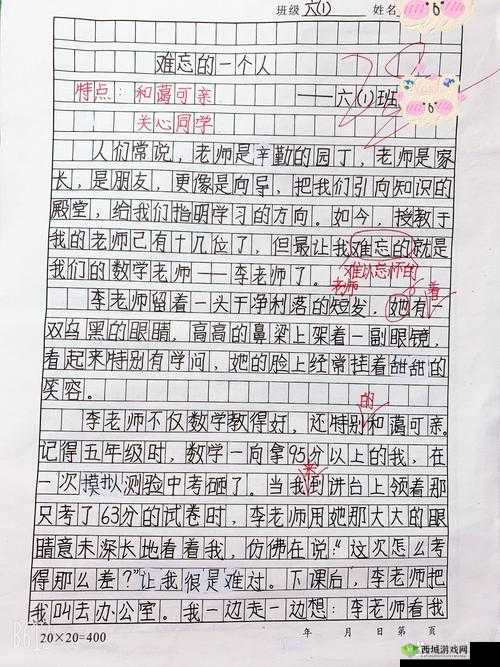 班级 六(1) 姓名
难忘的一个人
特点：和蔼可亲 ——六(1)班
关心同学
人们常说，老师是辛勤的园丁，老师是家
长，是朋友，更像是向导，把我们引向知识的
殿堂，给我们指明学习的方向。如今，授教于
我的老师已有十几位了，但最让我难忘的就是
我们的数学老师——李老师了。难以忘怀的
老师 着
李老师留着一头干净利落的短发，她有一
双乌黑的眼睛，高高的鼻梁上架着一副眼镜，
看起来特别有学问，她的脸上经常挂着甜甜的
笑容。
的
李老师不仅数学教得好，还特别和蔼可亲。
记得五年级时，数学一向拿95分以上的我，在
一次模拟测验中考砸了。当我到讲台上领着那
只考了63分的试卷时，李老师用她那大大的眼
睛意未深长地看着我，仿佛在说：“这次怎么考
得那么差？”让我很是难过。下课后，李老师把
我叫去办公室。我一边走一边想：李老师看我
20×20=400 年 月 日 第 页
西城游戏网